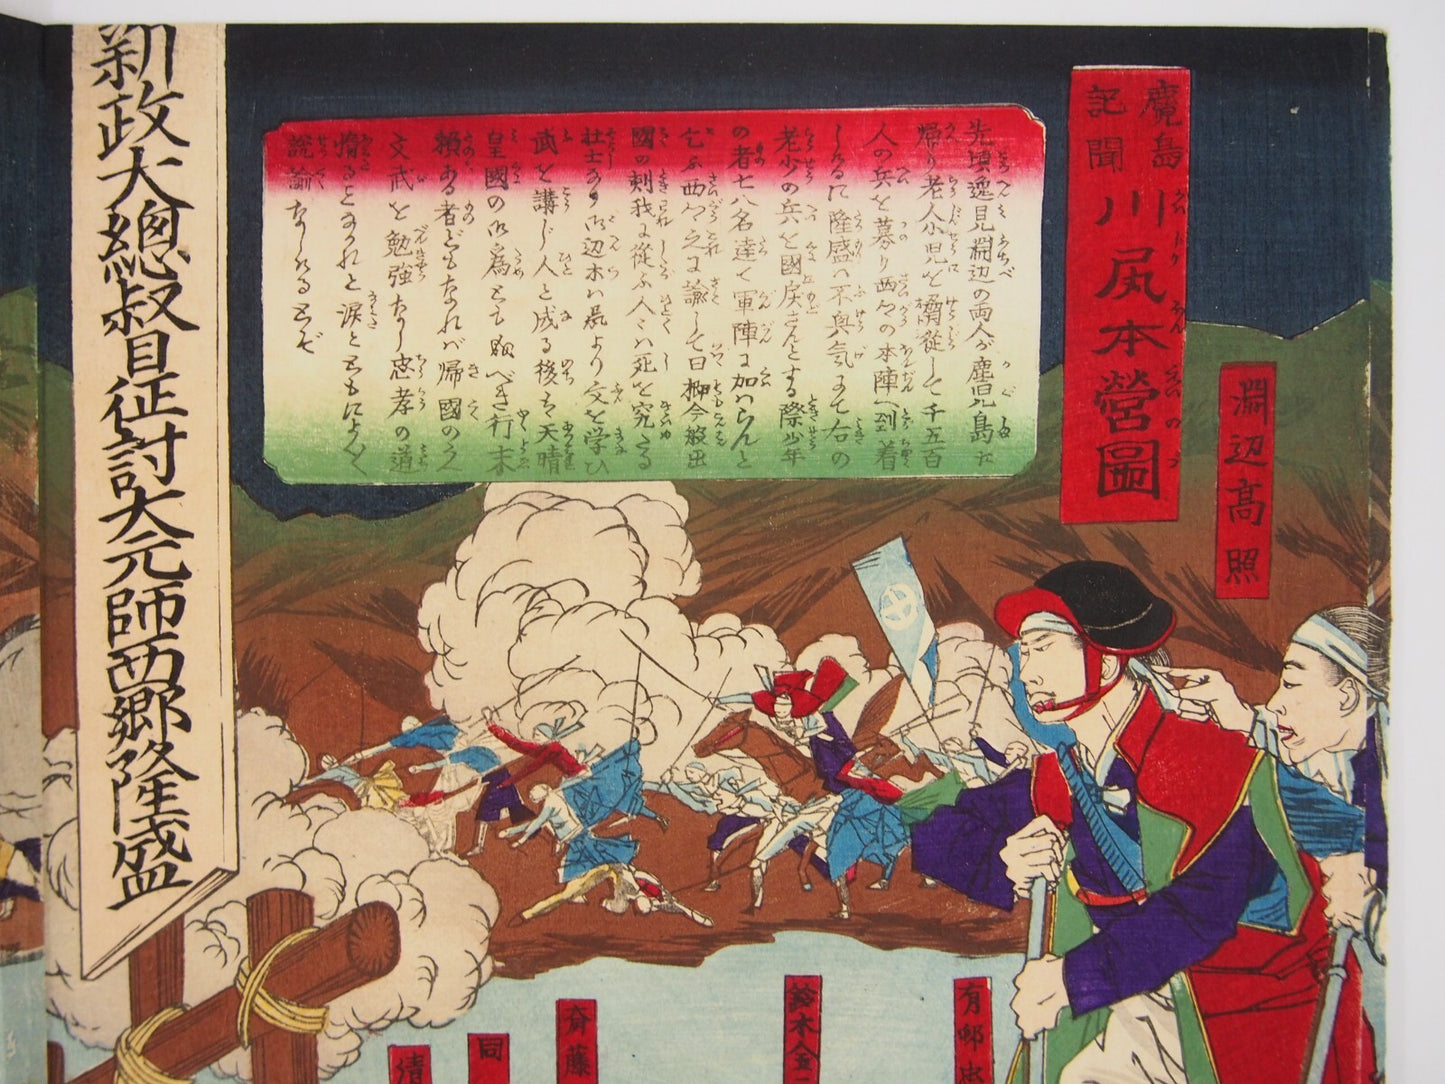 麑島
記聞
川尻本營圖
淵辺高照
先頃逸見淵辺の両人が麑児島に
帰り老人小児を脅従して千五百
人の兵を募り西々の本陣へ到着
しるに隆盛ハ不興気にて右の
老少の兵を國戻さんとする際少年
の者七八名達て軍陣に加ハらんと
乞ふ西々之に諭して曰抑今般出
國の刻我に從ふ人々ハ死を究たる
壮士なり
文を学び
武を講じ人と成る後も天晴
皇國の御爲とも成べき行末
頼ある者どもなれバ帰國のうへ
文武を勉強なし忠孝の道
惰ることなかれと涙とともによく〳〵
説諭なしけるとぞ
新政大總督征討大元師西郷隆盛
有邨忠
鈴木金
斉藤
同
清